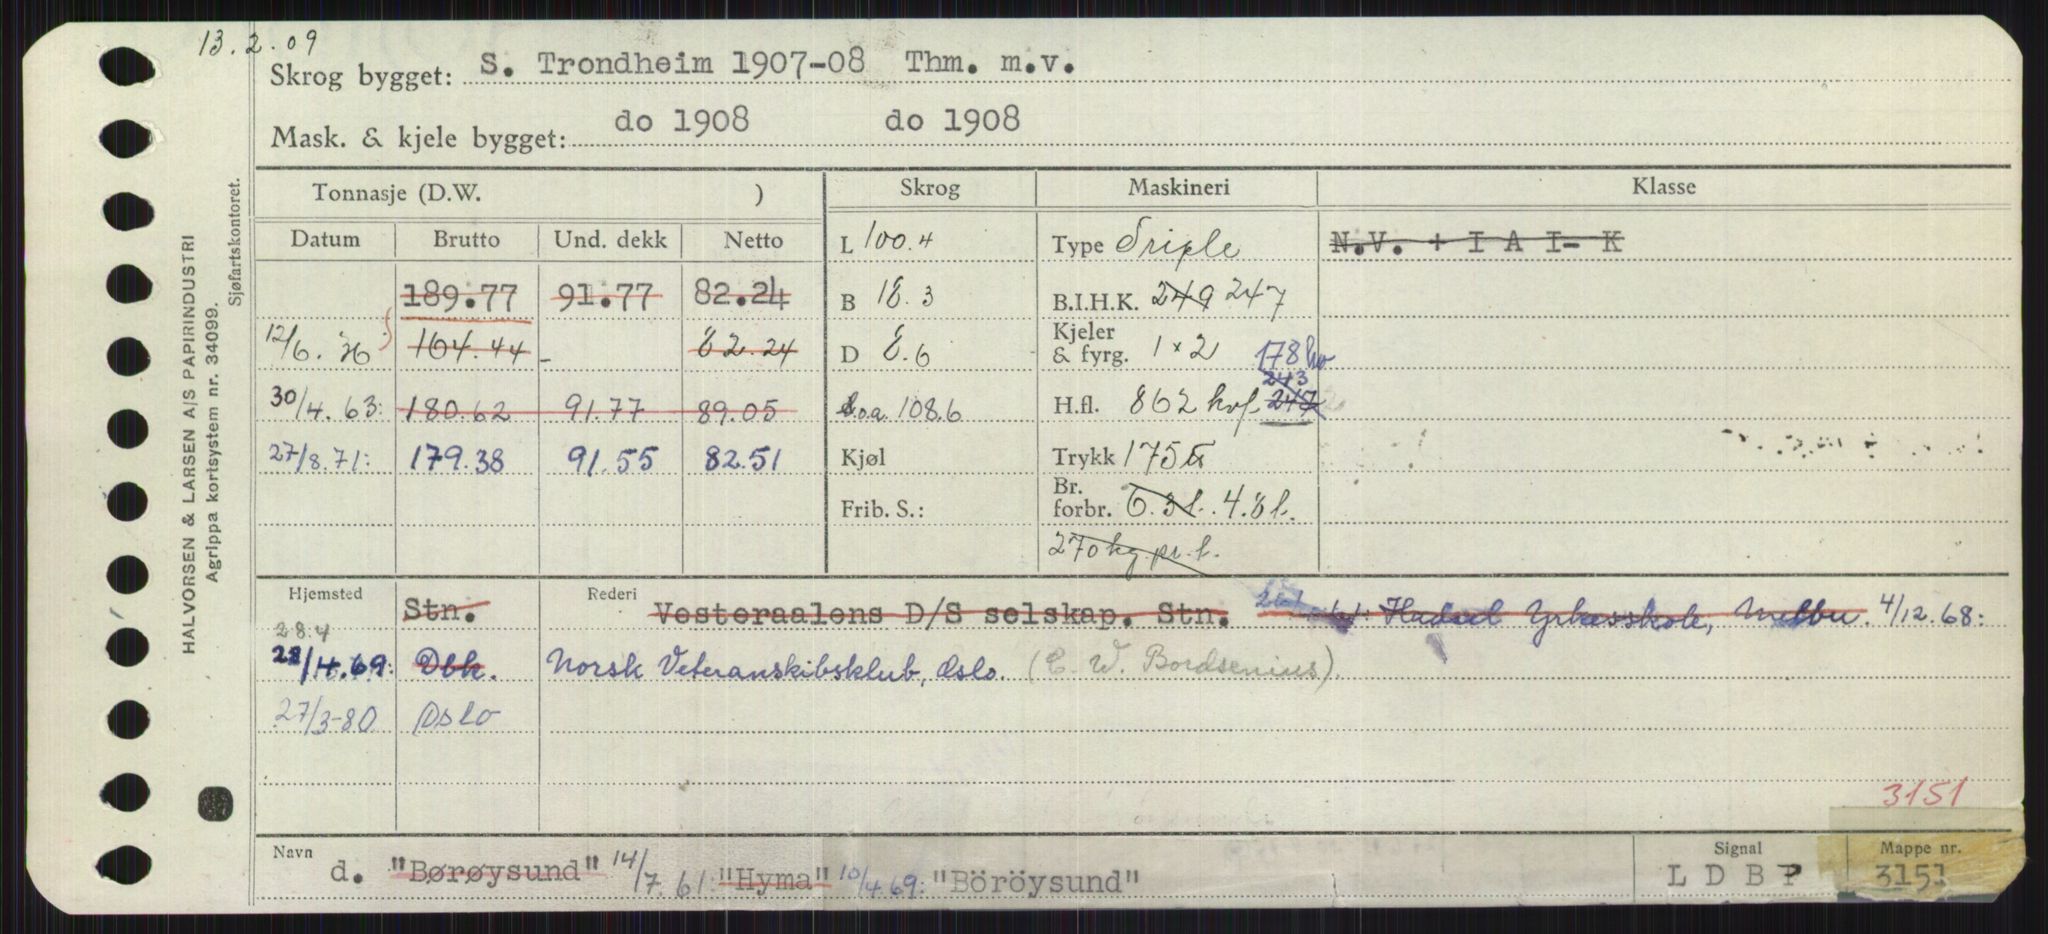 13.2.09
Skrog bygget: S. Trondheim 1907-08 Thm. m.v.
Mask. & kjele bygget: do 1908 do 1908
Tonnasje (D.W. ) Skrog Maskineri Klasse
Datum Brutto Und. dekk Netto L 100.4 Type Triple N.V. + I A I- K
189.77 91.77 82.24 B 18.3 B.I.H.K. 249 247
12/6. 164.44 - 82.24 D 8.6 Kjeler & fyrg. 1 x 2 178 hv
243
30/4.63: 180.62 91.77 89.05 l.o.a. 108.6 H.fl. 862 kvf. 247
27/8.71: 179.38 91.55 82.51 Kjøl Trykk 175 lb
Frib. S.: Br. forbr. 6.3 l. 4.8 l.
270 kg pr. l.
Hjemsted Stn. Rederi Vesteraalens D/S selskap. Stn. Hadsel Yrkesskole, Melbu. 4/12.68:
28.4
28/4.69: Dbk. Norsk Veteranskibsklub, Oslo. (C. W. Bordsenius).
27/3-80 Oslo
3151
Navn d. "Børøysund" 14/7.61: "Hyma" 10/4.69: "Böröysund" Signal L D B P Mappe nr. 3151
HALVORSEN & LARSEN A/S PAPIRINDUSTRI
Agrippa kortsystem nr. 34099.
Sjøfartskontoret.